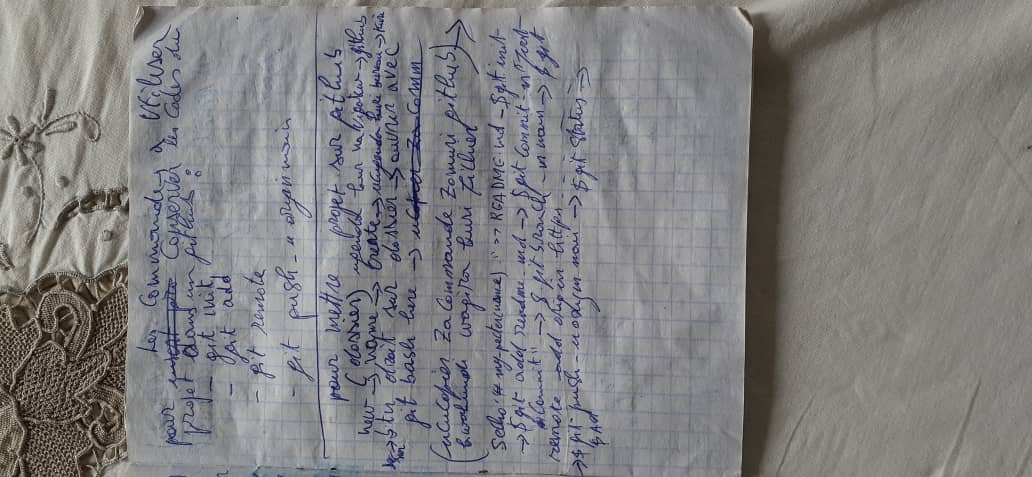 Les Commandes a Utiliser
pour Conserver les Codes du
projet dans un github :
- git init
- git add
- git remote
- git push -u origin main
pour mettre projet sur github
(dossier) ugenda kuri navigateur → github
new → name → Create → ukugenda kuri bureau →
→ btn droit sur dossier → ouvrir avec
git bash here → ucopier za Comm
(ucucopier Za Commande Zomuri github) →
kuri fichier
$echo "# my-performance) " >> README.md - $git init
→ $ git add readme.md → $ git Commit -m "first
Commit" → $ git branch -m main → $ git
remote add origin https
→ $ git push -u origin main → $ git status →